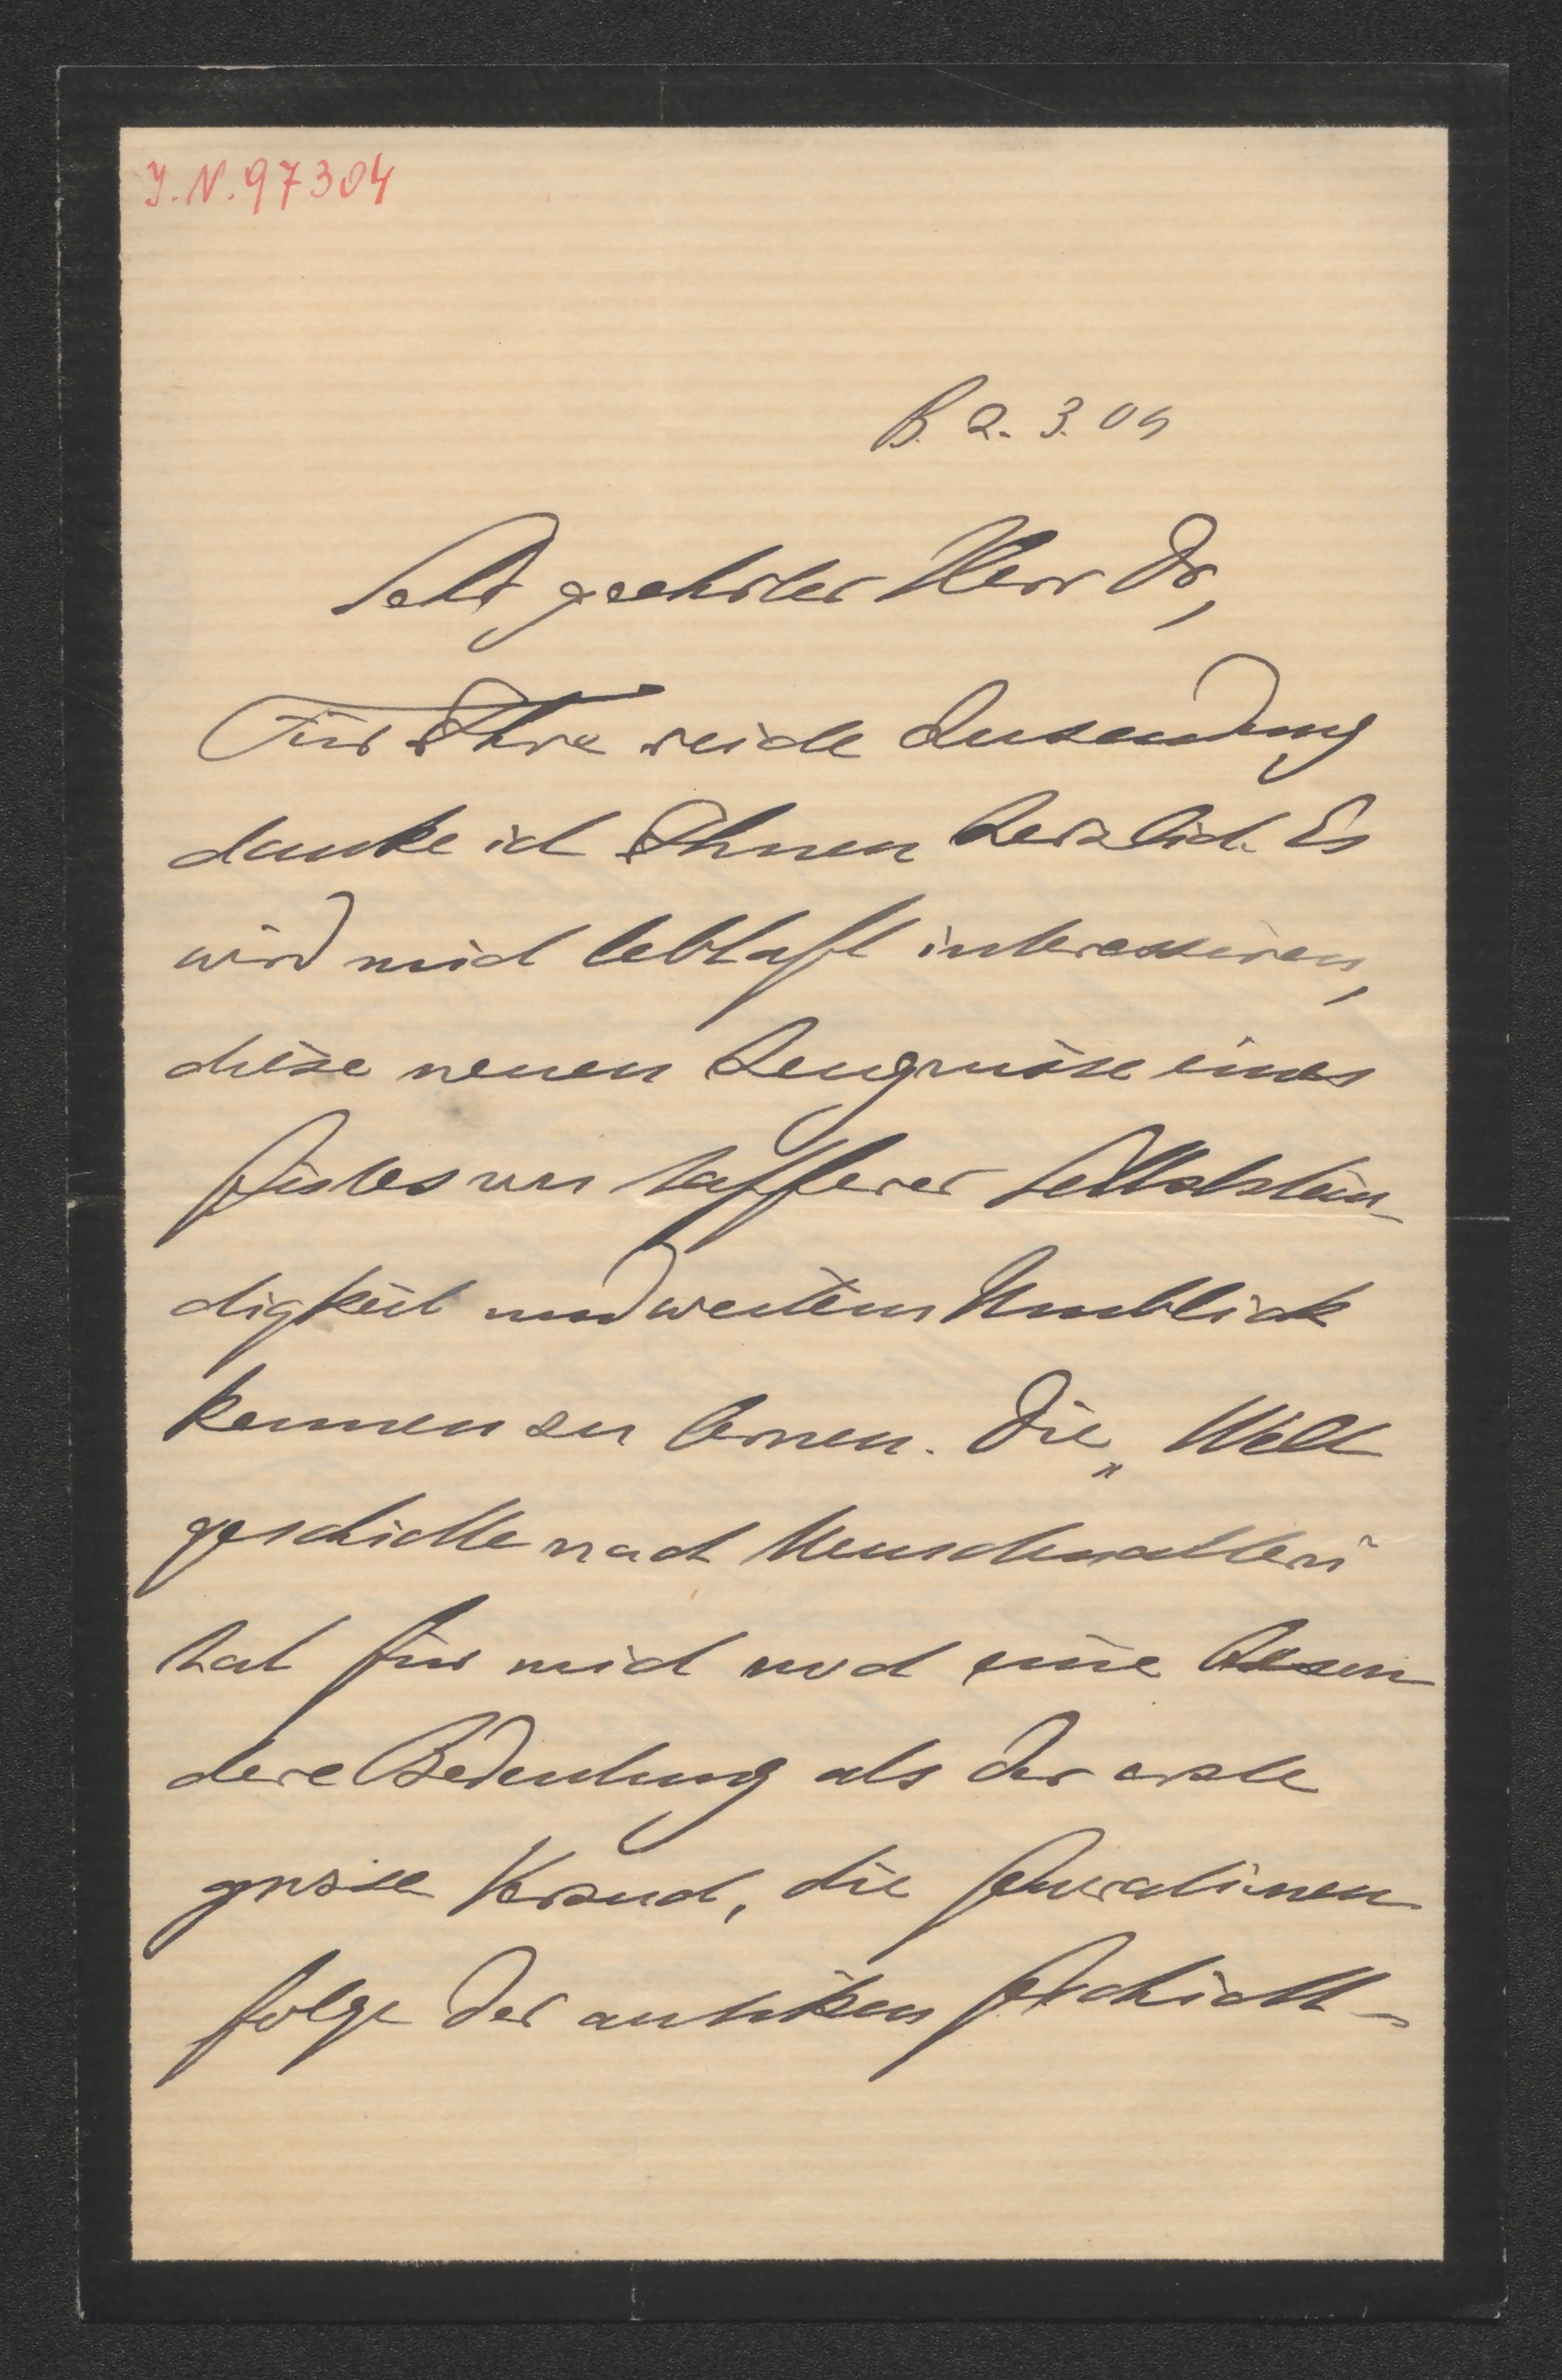 J.N. 97304
B. 2. 3. 09
Sehr geehrter Herr Dr,
Für Ihre reiche Zusendung
danke ich Ihnen herzlich. Es
wird mich lebhaft interessiren,
diese neuen Zeugnisse eines
Geistes von tapferer Selbststän-
digkeit und weitem Umblick
kennen zu lernen. Die „Welt
geschichte nach Menschenaltern“
hat für mich noch eine beson
dere Bedeutung als der erste
grosse Versuch, die Generationen
folge der antiken Geschicht-